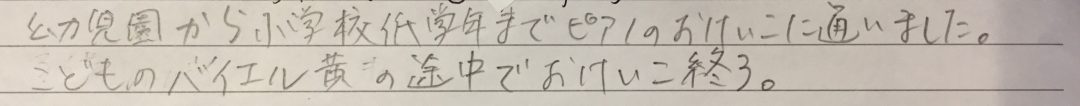 幼児園から小学校低学年までピアノのおけいこに通いました。
こどものバイエル黄の途中でおけいこ終る。